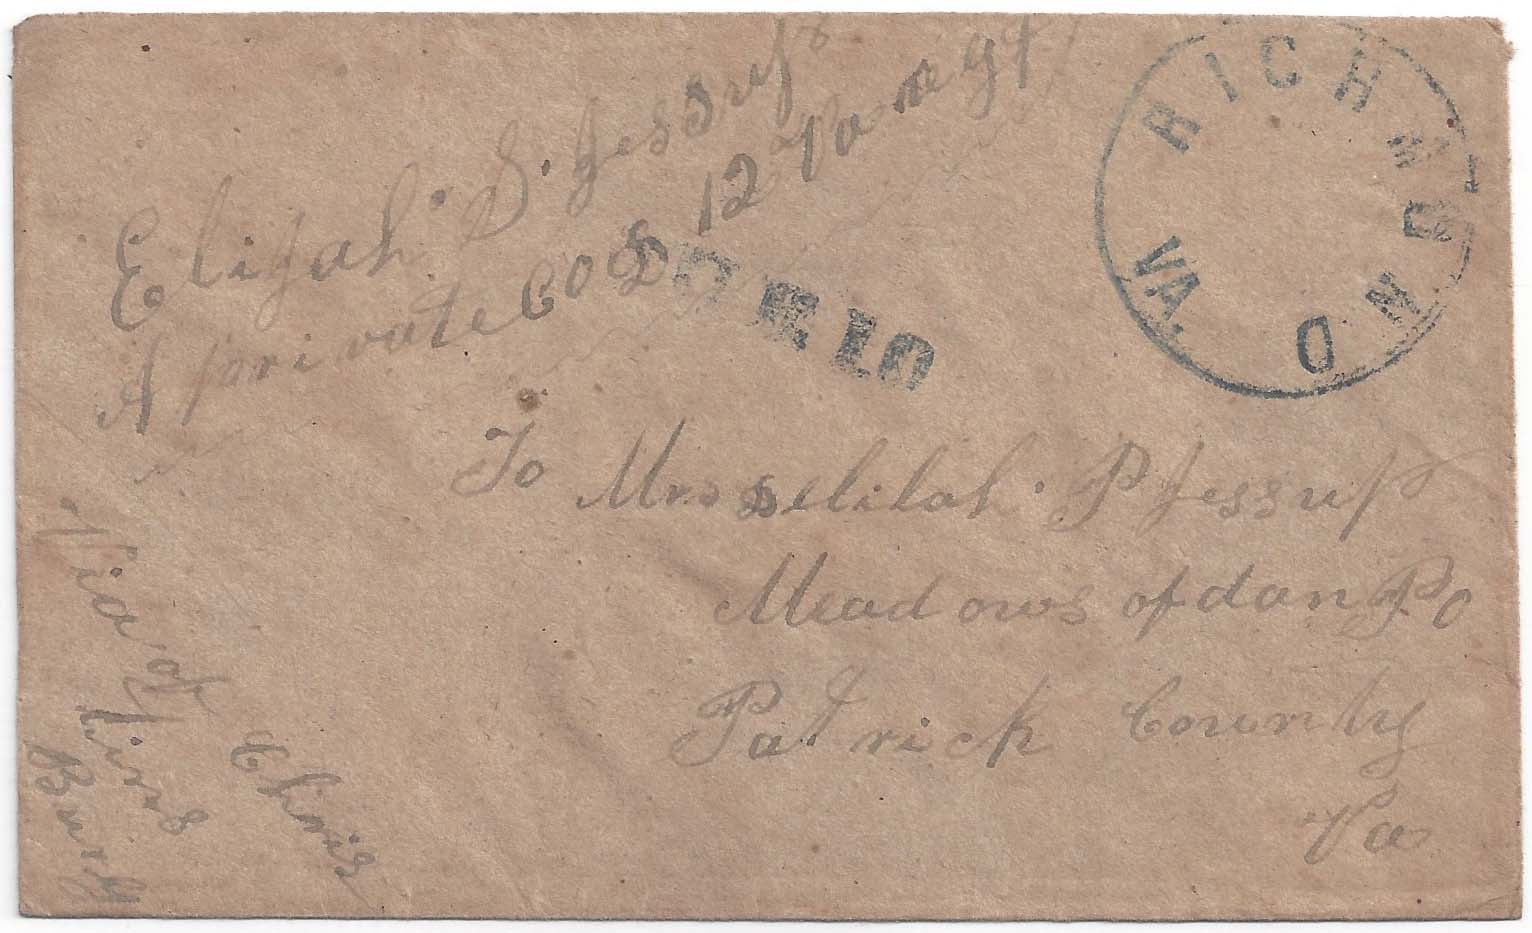 Elijah. S. Jessup
A private Co D 12 Va regt
RICHMOND VA.
DUE 10
To Mrs Delilah. P Jessup
Meadows of dan PO
Patrick County
Va
Via of
Chris